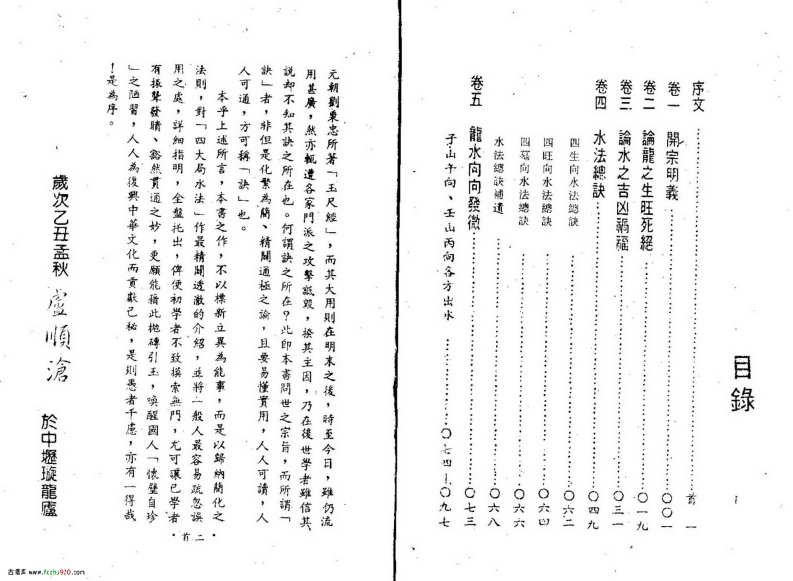 元朝劉秉忠所著「玉尺經」，而其大用則在明末之後，時至今日，雖仍流
用甚廣，然亦輒遭各家門派之攻擊詆毀，揆其主因，乃在後世學者雖信其
說却不知其訣之所在也。何謂訣之所在？此即本書問世之宗旨，而所謂「
訣」者，非但是化繁為簡、精闢通極之論，且要易懂實用，人人可讀，人
人可通，方可稱「訣」也。
本乎上述所言，本書之作，不以標新立異為能事，而是以歸納簡化之
法則，對「四大局水法」作最精闢透澈的介紹，並將一般人最容易疏忽誤
用之處，詳細指明，全盤托出，俾使初學者不致摸索無門，尤可讓已學者
有振聾發聵、豁然貫通之妙，更願能藉此拋磚引玉，喚醒國人「懷璧自珍
」之陋習，人人為復興中華文化而貢獻己秘，是則愚者千慮，亦有一得哉
！是為序。
歲次乙丑孟秋 盧順滄 於中壢璇龍廬
•首二•
目錄
序文……首一
卷一 開宗明義……〇〇一
卷二 論龍之生旺死絕……〇一九
卷三 論水之吉凶禍福……〇三一
卷四 水法總訣……〇四九
四生向水法總訣……〇六二
四旺向水法總訣……〇六四
四墓向水法總訣……〇六六
水法總訣補遺……〇六八
卷五 龍水向向發微……〇七三
子山午向、壬山丙向各方出水……〇七四－〇九七
吉易库 www.fozhu920.com